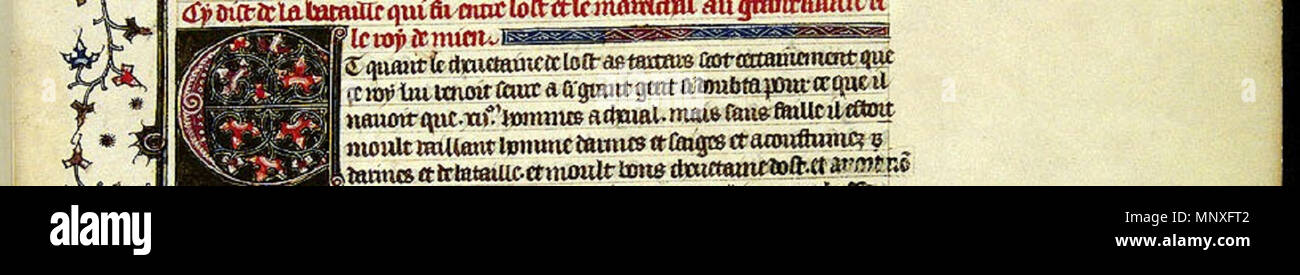 Cy dist de la bataille qui fu entre lost et le mareschal au grant kaan et
le roy de mien.
Et quant le chevetaine de lost as tartars scot certainement que
ce roy lui venoit seure a si grant gent si doubta pour ce que il
navoit que .xijᵐ. hommes a cheval. mais sans faille il estoit
moult vaillant homme darmes et saiges et acoustumez
darmes et de bataille. et moult bons chevetaine dost. et avoit nō
alamy
MNXFT2
www.alamy.com